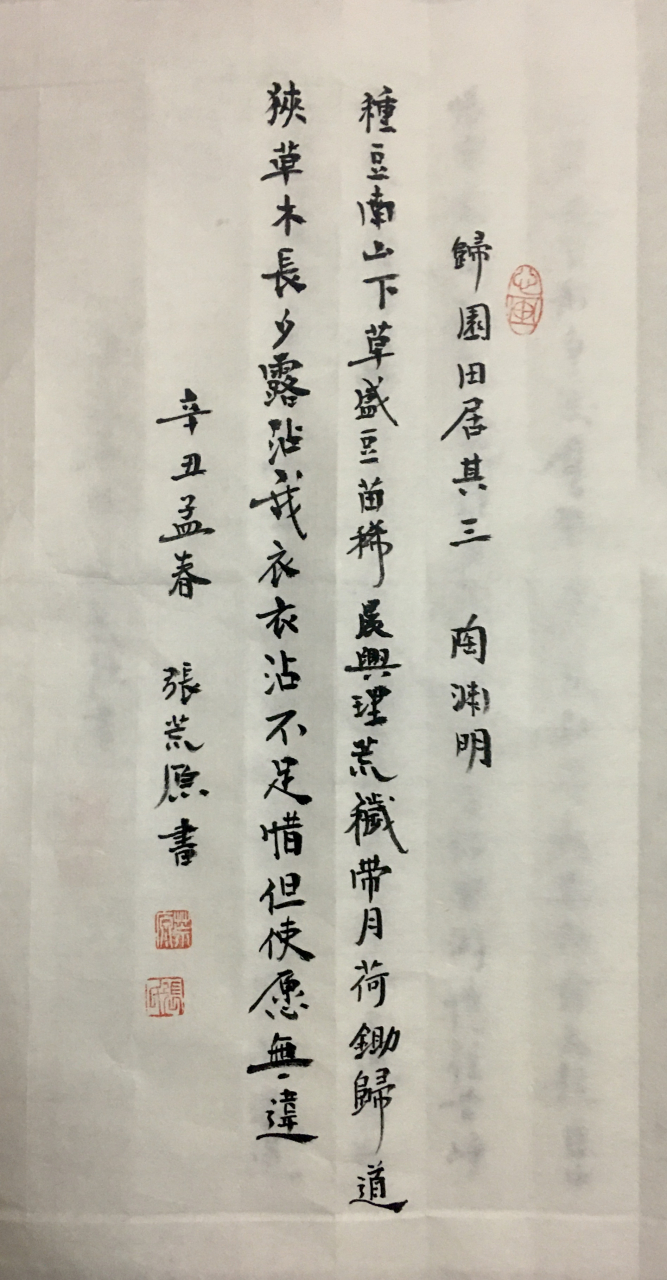 歸園田居其三 陶渊明
種豆南山下草盛豆苗稀晨興理荒穢带月荷鋤歸道
狹草木長夕露沾我衣衣沾不足惜但使愿無違
辛丑孟春 張荒原書
荒原